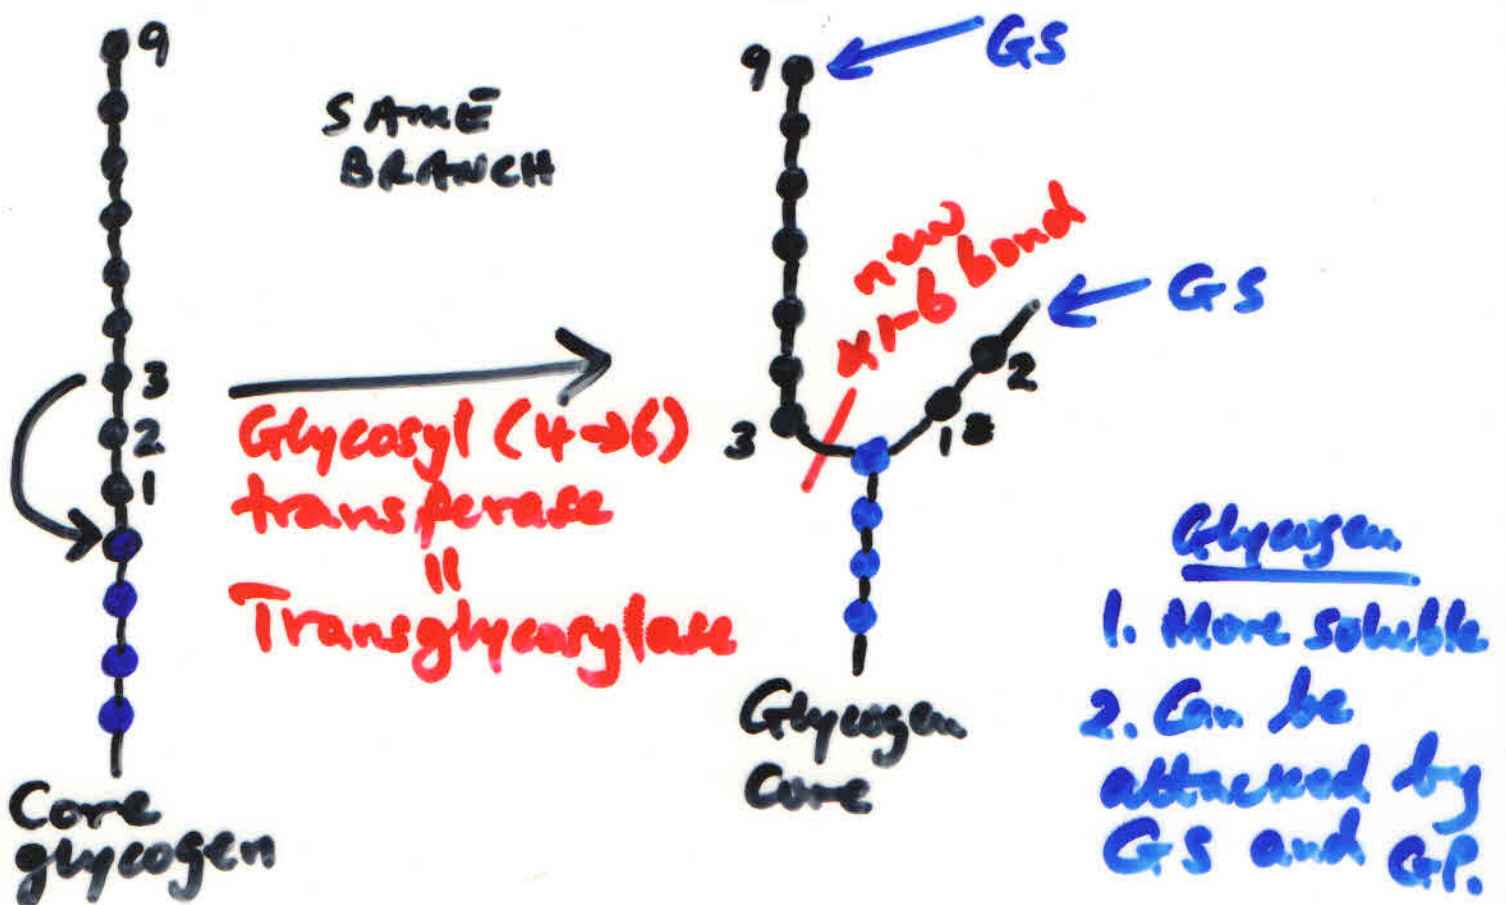 9
SAME
BRANCH
3
2
1
Core
glycogen
Glycosyl (4→6)
transferase
=
Transglycosylase
9
GS
new
α 1-6 bond
GS
2
1
3
Glycogen
Core
Glycogen
1. More soluble
2. Can be
attacked by
GS and GP.